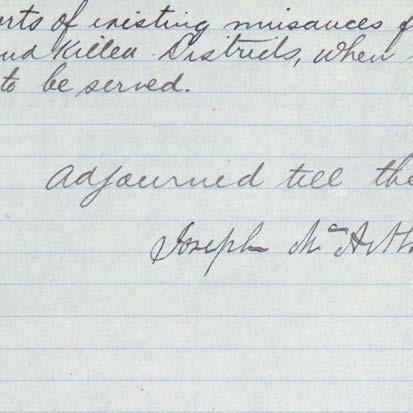 orts of existing nuisances f
and Killea Districts, when
to be served.
Adjourned till the
Joseph McArth